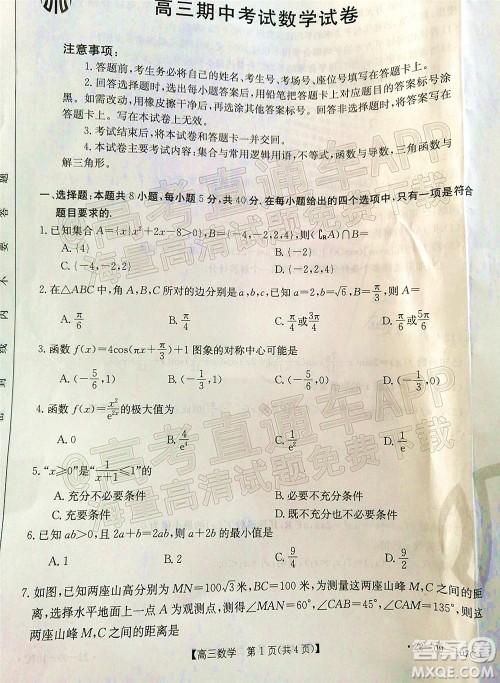 高三期中考试数学试卷
注意事项：
1. 答题前，考生务必将自己的姓名、考生号、考场号、座位号填写在答题卡上。
2. 回答选择题时，选出每小题答案后，用铅笔把答题卡对应题目的答案标号涂
黑。如需改动，用橡皮擦干净后，再选涂其他答案标号。回答非选择题时，将答案写在
答题卡上。写在本试卷上无效。
3. 考试结束后，将本试卷和答题卡一并交回。
4. 本试卷主要考试内容：集合与常用逻辑用语，不等式，函数与导数，三角函数，
解三角形。
一、选择题：本题共 8 小题，每小题 5 分，共 40 分。在每小题给出的四个选项中，只有一项是符合
题目要求的.
1. 已知集合 A={x|x²+2x-8>0}，B={-4,-2,4}，则(∁ᵣA)∩B=
A. {4} B. {-2}
C. {-4,-2} D. {-4,-2,4}
2. 在△ABC 中，角 A，B，C 所对的边分别是 a，b，c，已知 a=2，b=√6，B=π/3，则 A=
A. π/6 B. π/4 C. π/4 或 3π/4 D. π/6 或 5π/6
3. 函数 f(x)=4cos(πx+π/3)+1 图象的对称中心可能是
A. (-5/6,1) B. (-5/6,0) C. (5/6,1) D. (5/6,0)
4. 函数 f(x)=x²/e²ˣ 的极大值为
A. 0 B. 4/e⁴ C. 1/e² D. 1/e
5. “x≥0”是“1/(x+1)≤1”的
A. 充分不必要条件 B. 必要不充分条件
C. 充要条件 D. 既不充分也不必要条件
6. 已知 a>0，b>0，且 2a+b=2ab，则 a+2b 的最小值是
A. 1 B. 2 C. 9/4 D. 9/2
7. 如图，已知两座山高分别为 MN=100√3米，BC=100 米，为测量这两座山峰 M，C 之间的距
离，选择水平地面上一点 A 为观测点，测得∠MAN=60°，∠CAB=45°，∠MAC=135°，则两座
山峰 M，C 之间的距离是
【高三数学 第 1 页(共 4 页)】
高考直通车APP
海量高清试题免费下载
@高考直通车APP
海量高清试题免费下载